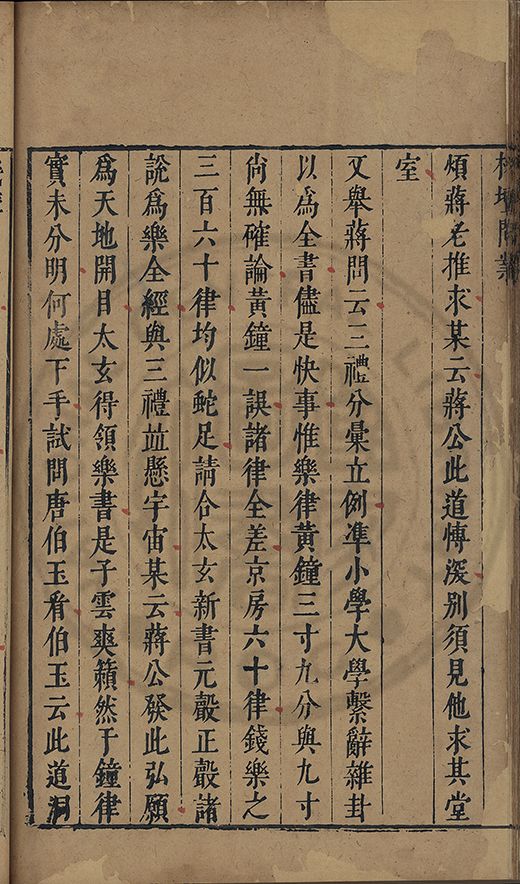 榕壇問業
煩蔣老推求某云蔣公此道慱深别須見他求其堂
室
又舉蔣問云三禮分彙立例凖小學大學繫辭雜卦
以爲全書儘是快事惟樂律黄鐘三寸九分與九寸
尚無確論黄鐘一誤諸律全差京房六十律錢樂之
三百六十律均似蛇足請合太玄新書元嗀正嗀諸
說爲樂全經與三禮並懸宇宙某云蔣公發此弘願
爲天地開目太玄得領樂書是子雲爽籟然于鐘律
實未分明何處下手試問唐伯玉看伯玉云此道洞